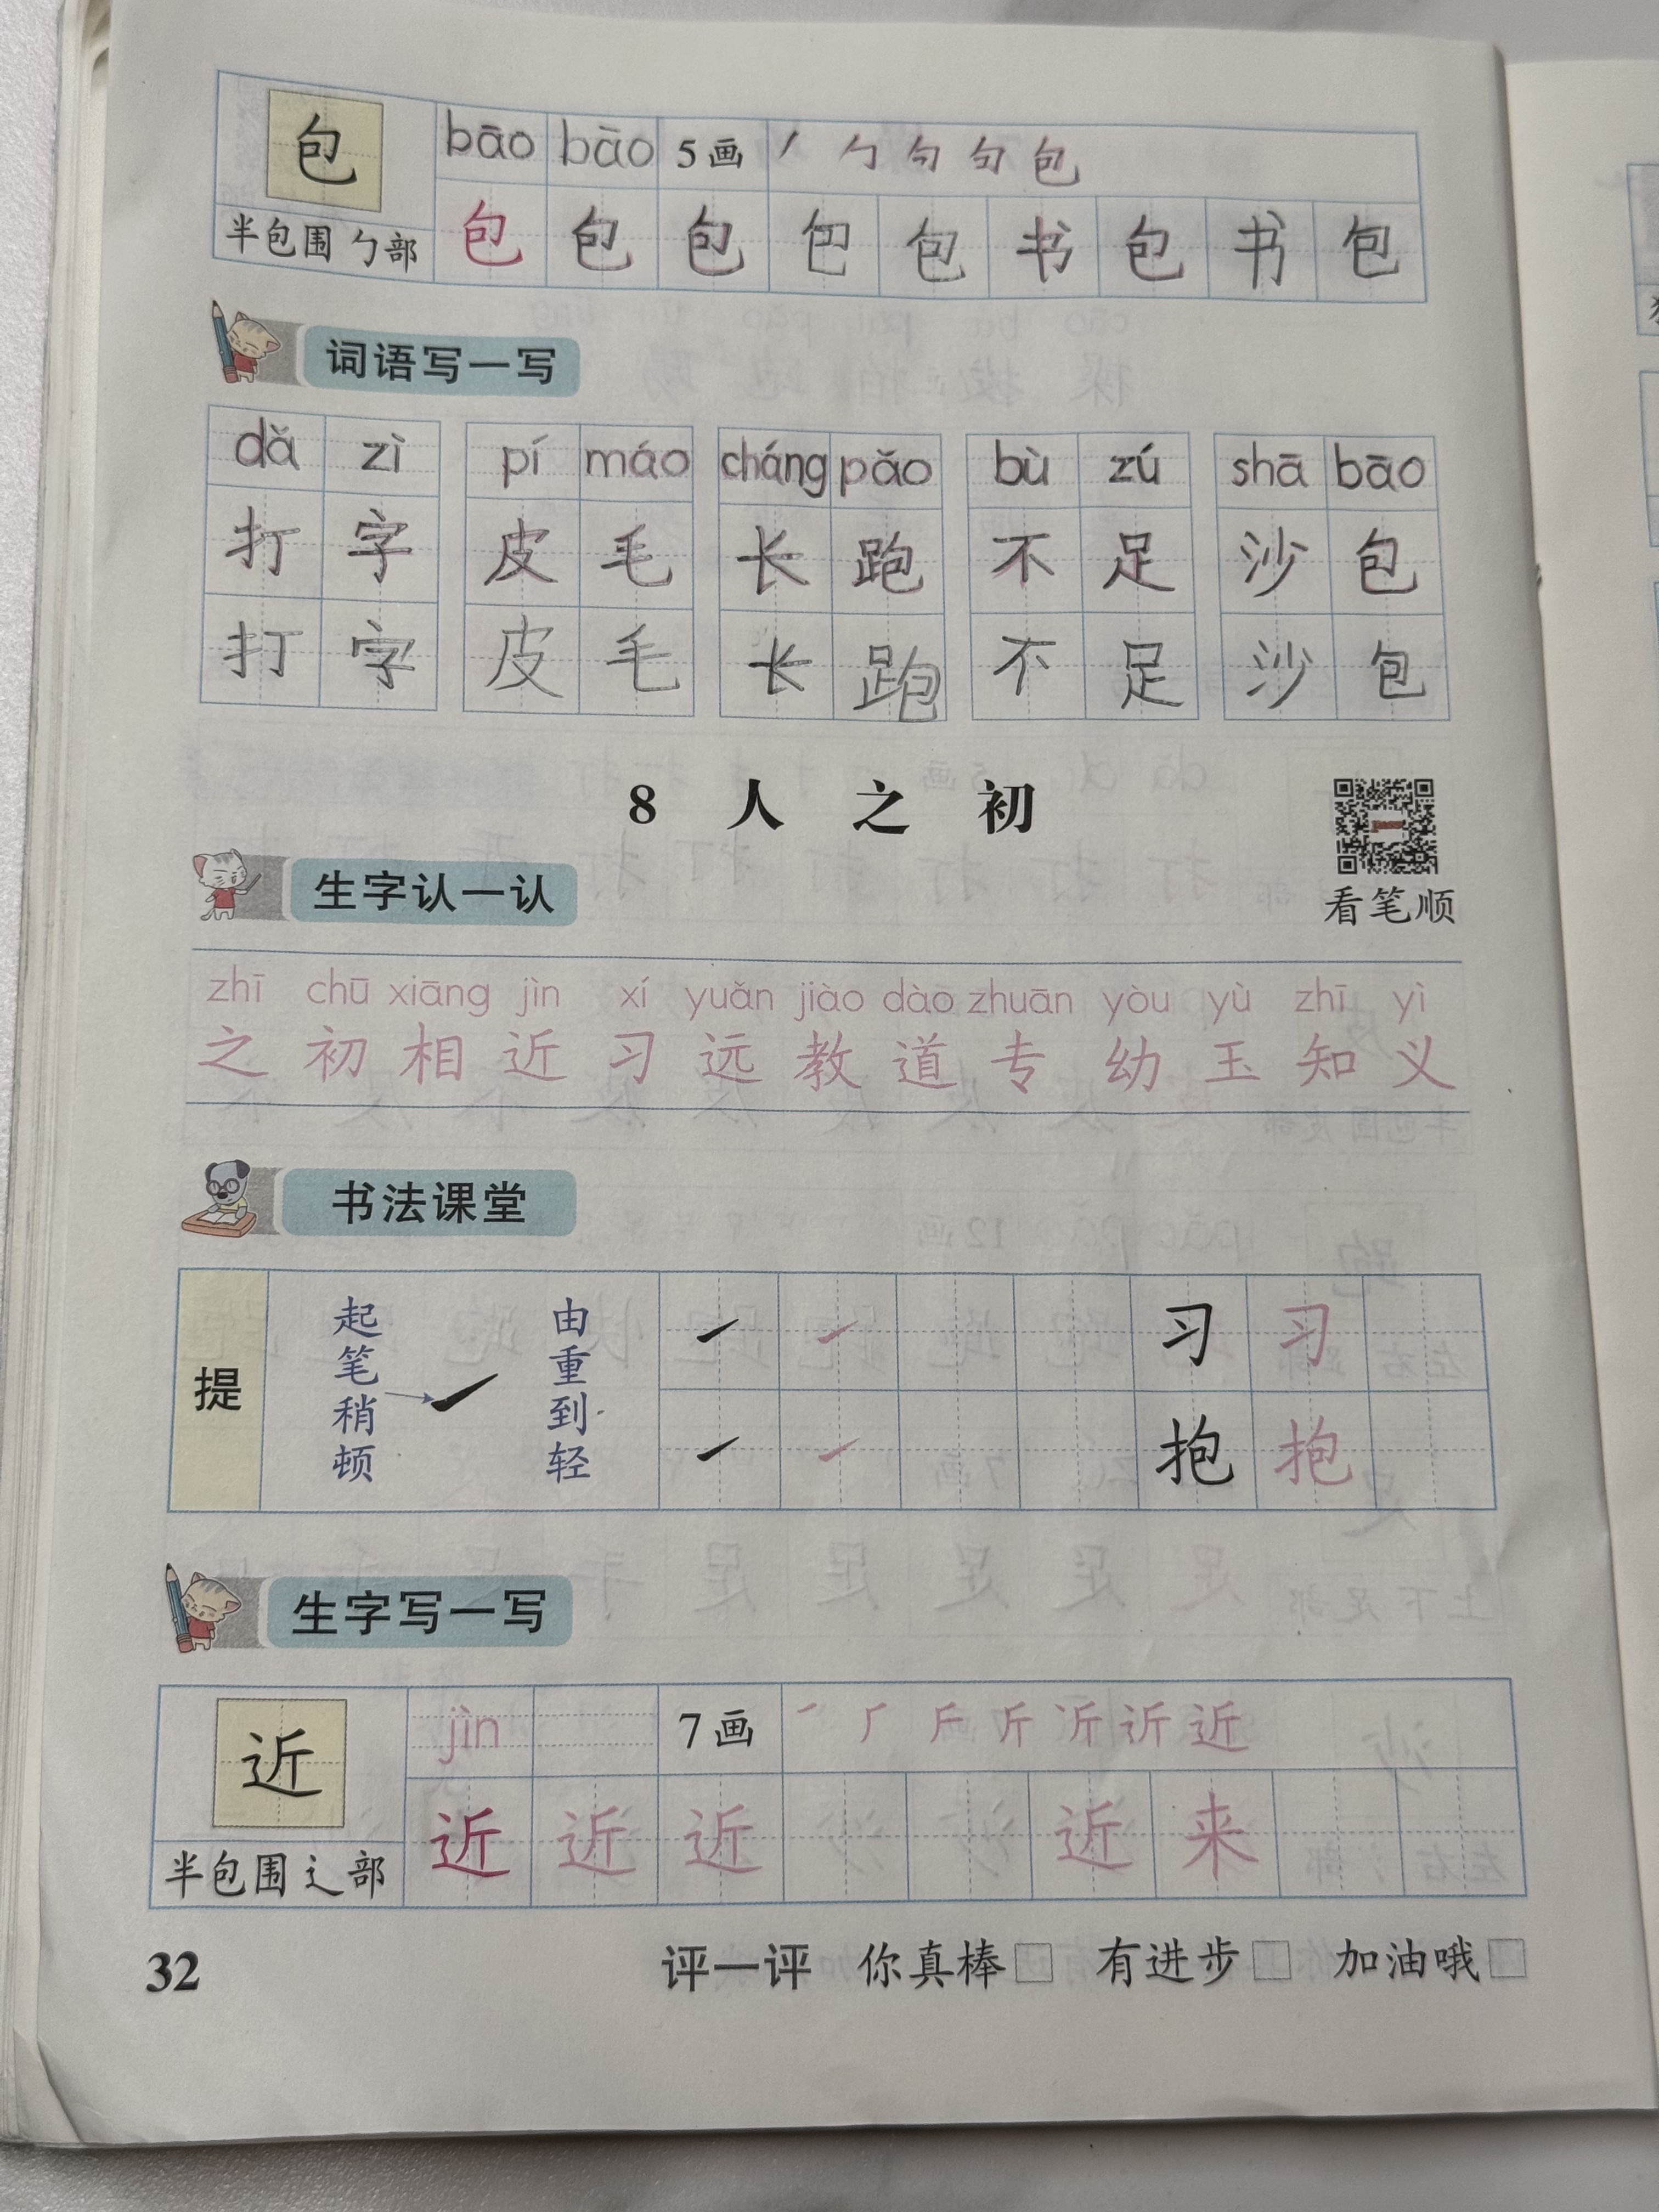 包 bāo bāo 5画 丿 勹 勹 句 包
半包围 勹部 包 包 包 包 包 书 包 书 包
词语写一写
dǎ zì pí máo cháng pǎo bù zú shā bāo
打 字 皮 毛 长 跑 不 足 沙 包
打 字 皮 毛 长 跑 不 足 沙 包
8 人 之 初
看笔顺
生字认一认
zhī chū xiāng jìn xí yuǎn jiào dào zhuān yòu yù zhī yì
之 初 相 近 习 远 教 道 专 幼 玉 知 义
书法课堂
提 起笔稍顿 由重到轻 习 习
抱 抱
生字写一写
近 jìn 7画 近
半包围 辶部 近 近 近 近 来
32 评一评 你真棒□ 有进步□ 加油哦□